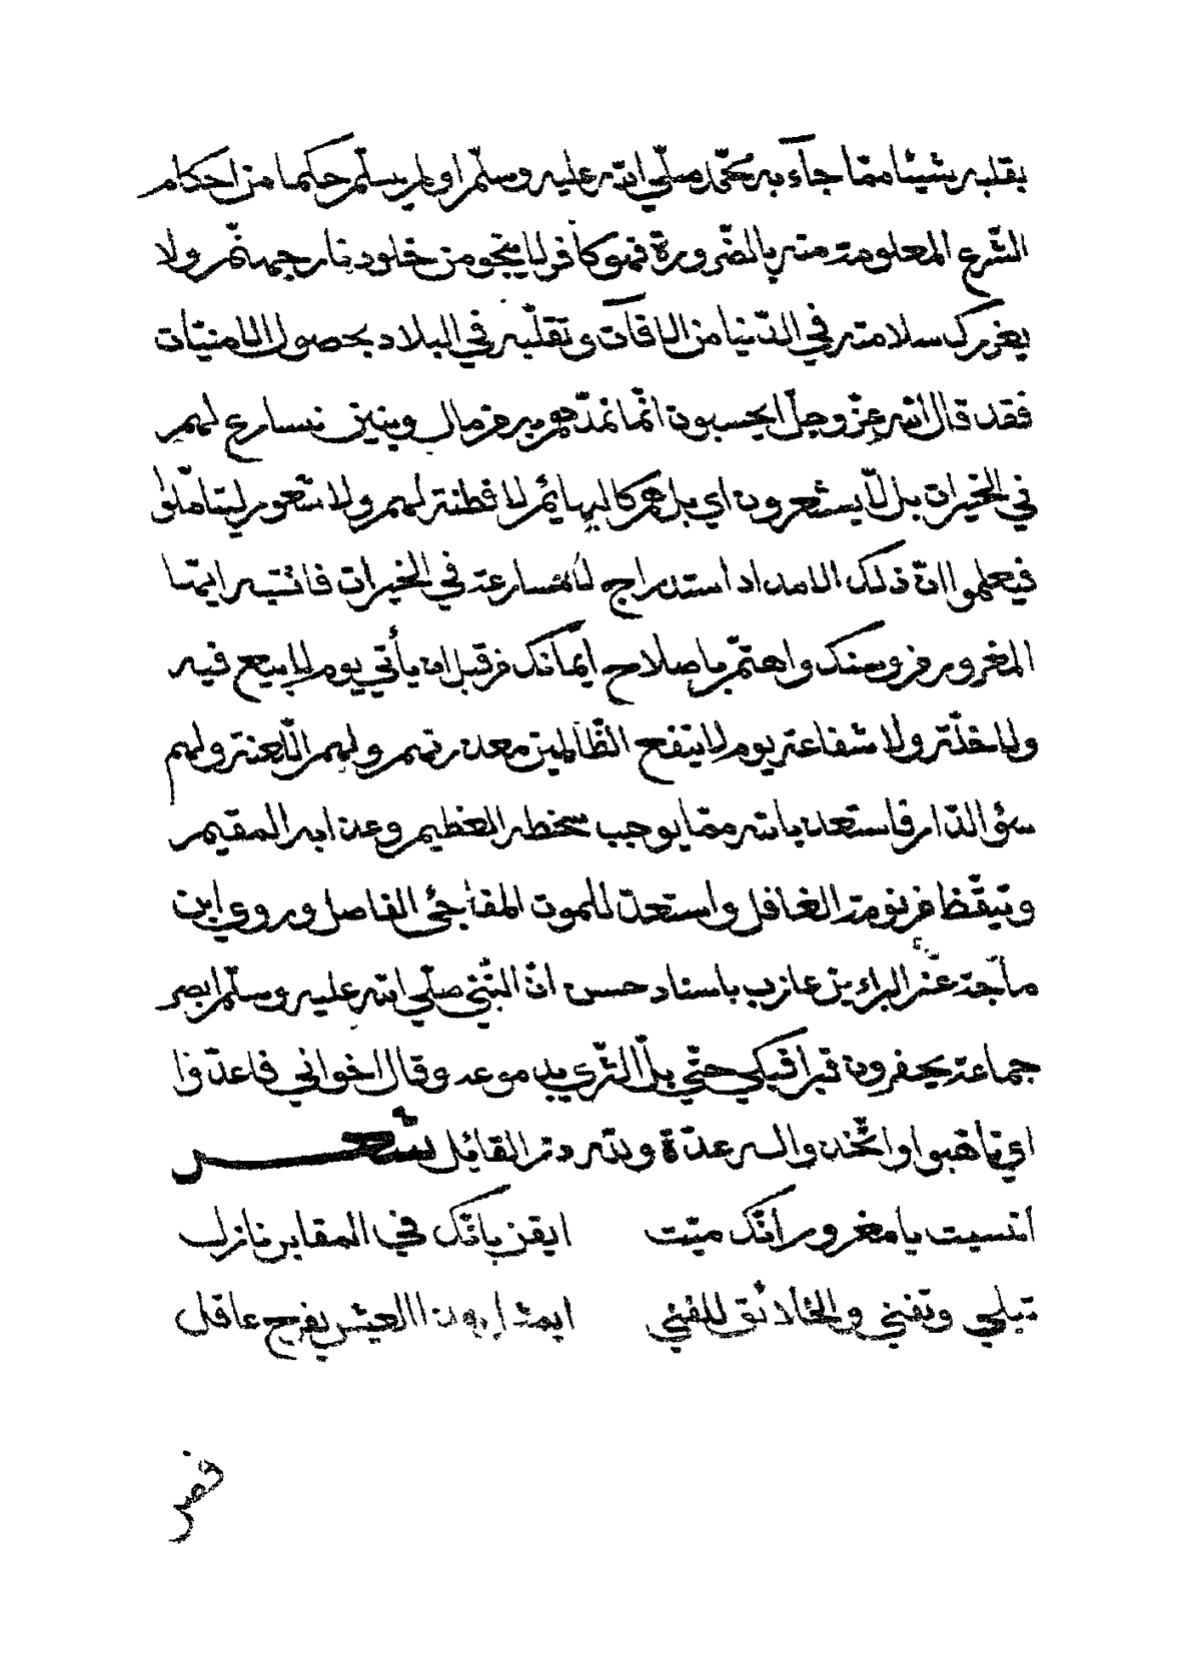 بقلبه شيئا ممّا جآء به محمّد صلّي الله عليه وسلّم او لم يسلّم حكما من احكام
الشّرع المعلومة منه بالضّرورة فهو كافر لا ينجو من خلود نار جهنّم ولا
يغررك سلامته في الدّنيا من الافآت وتقلّبه في البلاد بحصول الامنيّات
فقد قال الله عزّ وجلّ ايحسبون انّما نمدّهم به من مال وبنين نسارع لهم
في الخيرات بل لّا يشعرون اي بل هم كالبهائم لا فطنة لهم ولا شعور ليتامّلوا
فيعلموا انّ ذلك الامداد استدراج لا مسارعة في الخيرات فانتبه ايّها
المغرور من وسنك واهتمّ باصلاح ايمانك من قبل ان يأتي يوم لا بيع فيه
ولا خلّة ولا شفاعة يوم لا ينفع الظّالمين معذرتهم ولهم اللّعنة ولهم
سؤ الدّار فاستعذ بالله ممّا يوجب سخطه العظيم وعذابه المقيم
وتيقّظ من نومة الغافل واستعدّ للموت المفاجئ الفاصل وروي ابن
ماجة عن البراء بن عازب باسناد حسن انّ النّبيّ صلّي الله عليه وسلّم ابصر
جماعة يحفرون قبرا فبكي حتّي بلّ الثّري بدموعه وقال اخواني فاعدّوا
اي تاهّبوا واتّخذوا له عدّة ولله درّ القائل شعر
انسيت يا مغرور انّك ميّت ايقن بانّك في المقابر نازل
تبلي وتفني والخلائق للفني ابمثل هذا العيش يفرح عاقل
فصل